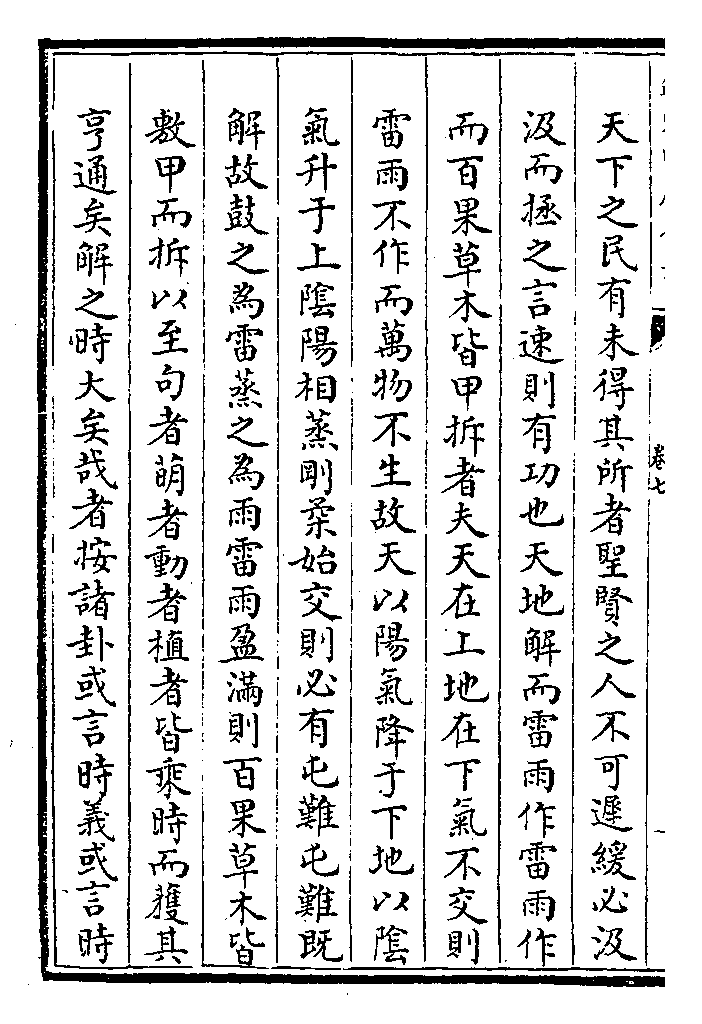 卷七
天下之民有未得其所者聖賢之人不可遲緩必汲
汲而拯之言速則有功也天地解而雷雨作雷雨作
而百果草木皆甲拆者夫天在上地在下氣不交則
雷雨不作而萬物不生故天以陽氣降于下地以隂
氣升于上隂陽相蒸剛柔始交則必有屯難屯難既
解故鼓之為雷蒸之為雨雷雨盈滿則百果草木皆
敷甲而拆以至句者萌者動者植者皆乘時而獲其
亨通矣解之時大矣哉者按諸卦或言時義或言時